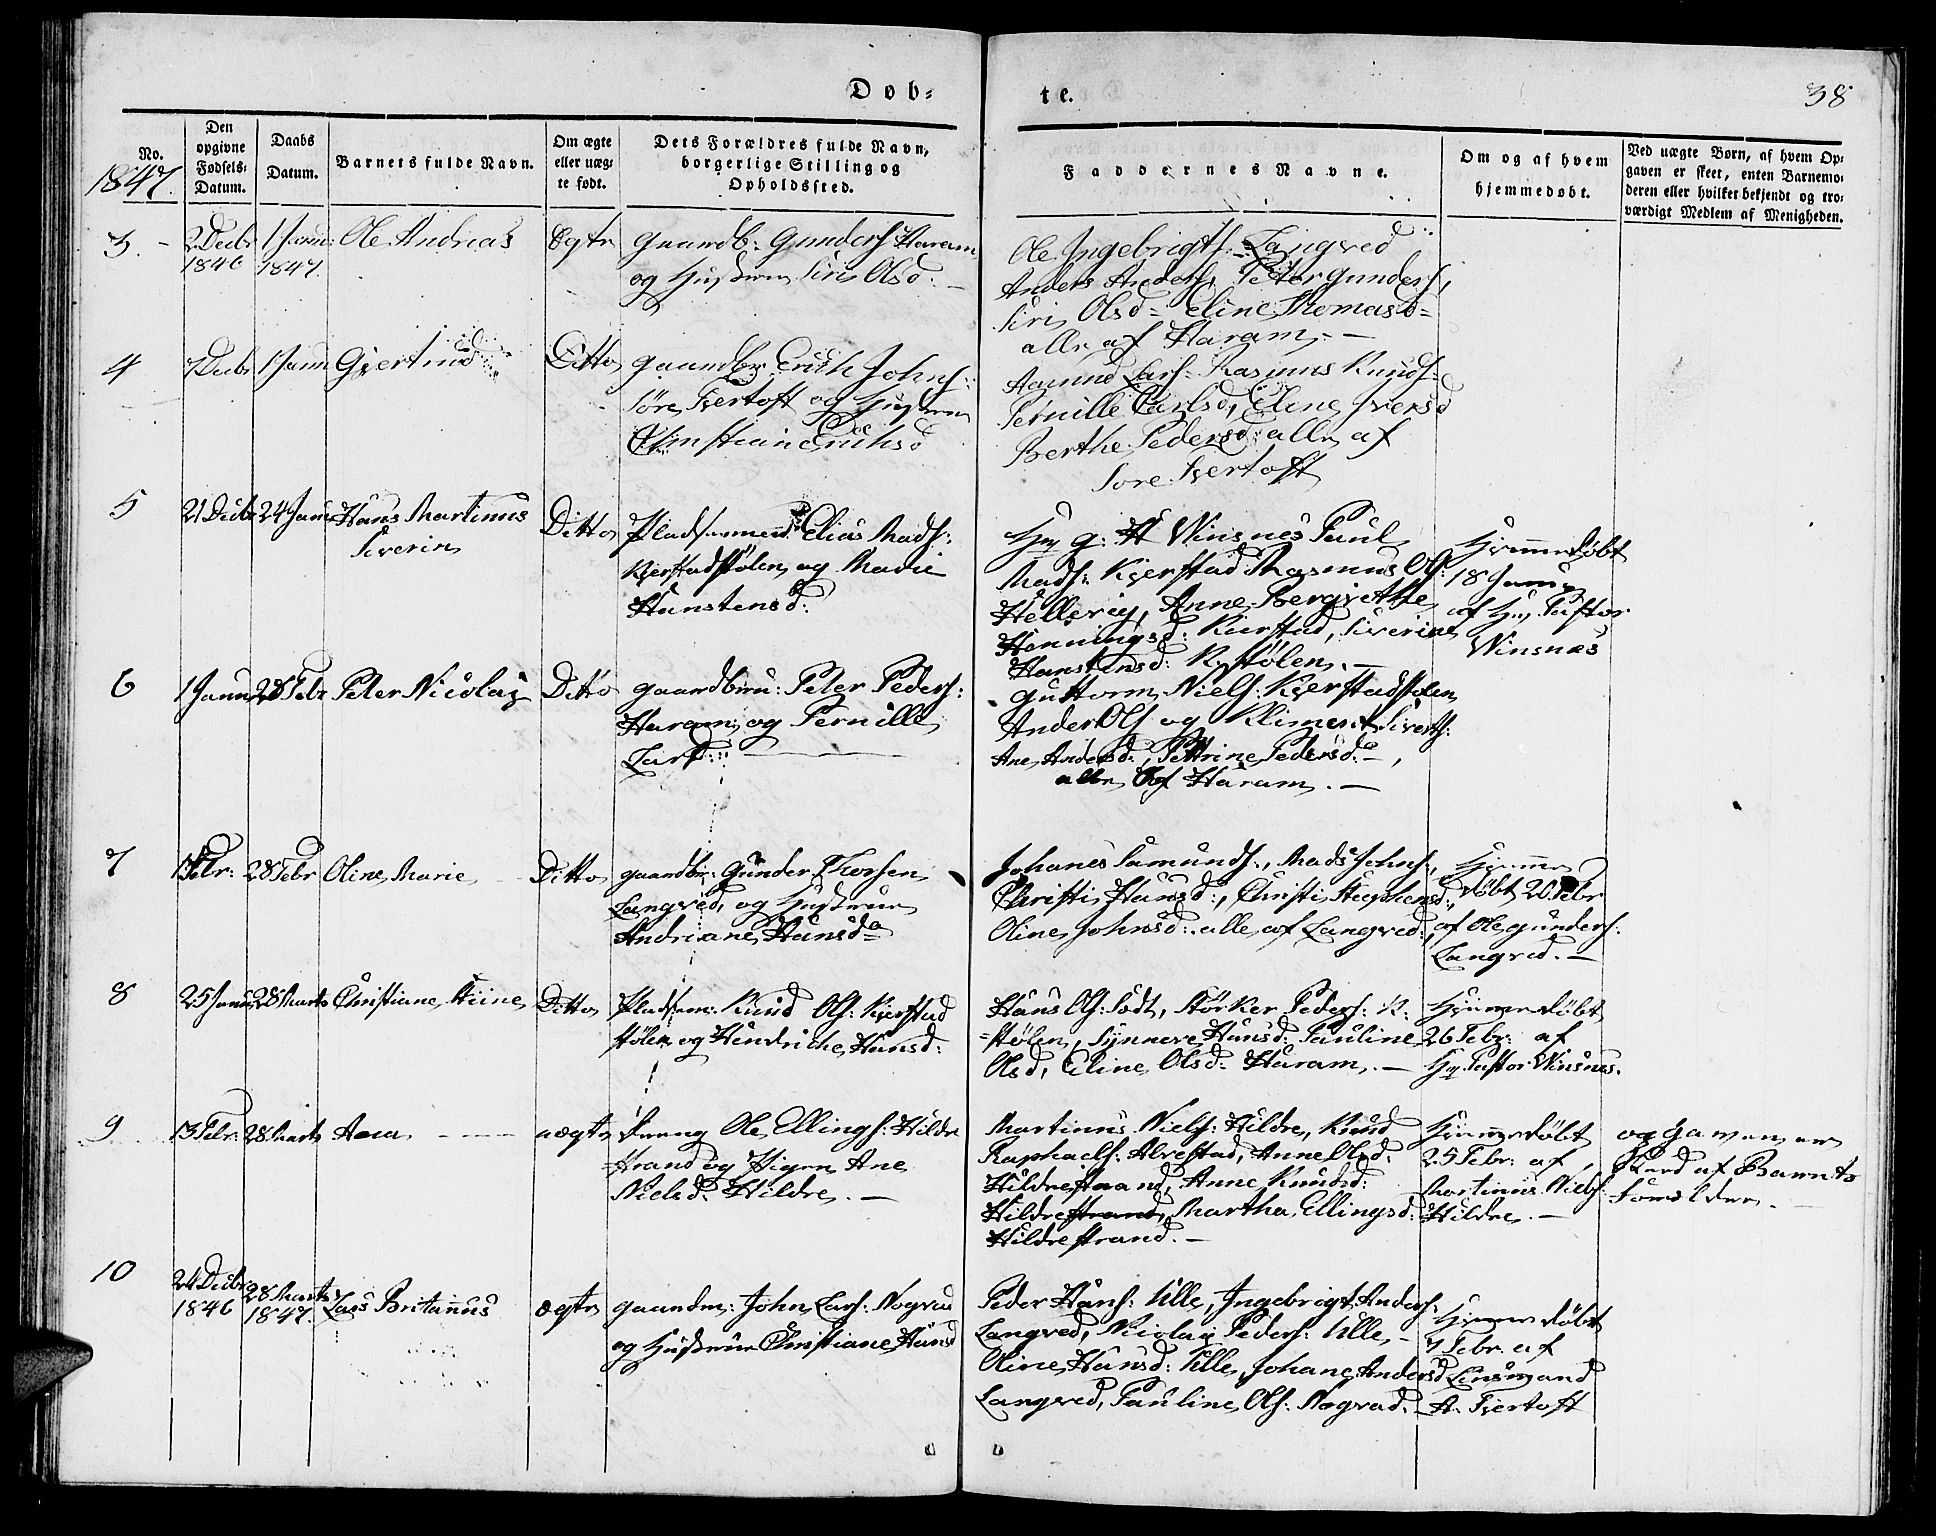 Døb-
te.
38
No.
1847.
Den
opgivne
Fødsels-
Datum.
Daabs
Datum.
Barnets fulde Navn.
Om ægte
eller uæg-
te født.
Dets Forældres fulde Navn,
borgerlige Stilling og
Opholdssted.
Faddernes Navne.
Om og af hvem
hjemmedøbt.
Ved uægte Børn, af hvem Op-
gaven er skeet, enten Barnemo-
deren eller hvilket bekjendt og tro-
værdigt Medlem af Menigheden.
3.
2 Decbr
1846
1 Janu:
1847.
Ole Andreas
Ægte
Gaardb: Gunders Haram
og Hustrue Siri Olsd. –
Ole Ingebrigts: Langved
Anders Anders, Petter Gunders,
Siri Olsd= Eline Thomasd=
alle af Haram. –
4
7 Decbr
1 Janu
Gjertrud
Ditto
Gaardbr: Erich Johns:
Søre Fjertoft og Hustrue
Christiane Erichsd
Aamund Lars= Rasmus Knuds=
Pernille Carlsd, Eline Iversd
Berthe Pedersd: alle af
Søre Fjertoft
5
21 Decbr
24 Janu
Hans Martinus
Siverin
Ditto
Pladsmand Elias Mads:
Kjerstadstølen og Marie
Hanstensd:
Hr G: H Winsnes Paul
Mads: Kjerstad Rasmus Ols:
Hellevig, Anne Bergrethe
Henningsd: Kierstad, Siverine
Hanstensd: K.stølen. –
Hjemmedøbt
18 Janu
af Hr Pastor
Winsnæs
6
1 Janu
28 Febr
Peter Nicolai
Ditto
Gaardbru: Peter Peders:
Haram og Pernille
Larsd:
Guttorm Niels: Kjerstadstølen
Ander Ols og Kliment Siverts:
Ane Andersd:, Pettrine Pedersd. –,
alle af Haram. –
7
1 Febr:
28 Febr
Oline Marie
Ditto
Gaardbr: Gunder Thorsen
Langved, og Hustrue
Andriane Hansda
Johanes Samunds:, Mads Johns:,
Christi Hansd:, Christi Stephensd:,
Oline Johnsd: alle af Langved:
Hjemme
døbt 20 Febr
af Ole Gunders:
Langved. –
8
25 Janu
28 Marts
Christiane Stine
Ditto
Pladsm: Knud Ols: Kjerstad
stølen og Hendriche Hansd:
Hans Ols: Lødt, Størker Peders: K:
=stølen, Synneve Hansd: Pauline
Olsd, Eline Olsd: Haram. –
Hjemmedøbt
26 Febr: af
Hr Pastor Winsnes.
9
13 Febr:
28 Marts
Anna
uægte
Dreng Ole Ellings: Hildre
strand og Pigen Ane
Nielsd: Hildre. –
Martinus Niels: Hildre, Knud
Raphaels: Alvestad, Anne Olsd:
Hildrestrand, Anne Knudsd:
Hildrestrand, Martha Ellingsd:
Hildrestrand. –
Hjemmedøbt
25 Febr: af
Martinus Niels:
Hildre. –
opgaven er
skeed af Barnets
Forældre. –
10
24 Decbr
1846
28 Marts
1847.
Lars Britanus
ægte
Gaardm: John Lars: Nogva
og Hustrue Christiane Hansd
Peder Hans: Ulle, Ingebrigt Anders:
Langved, Nicolai Peders: Ulle, –
Oline Hansd: Ulle, Johane Andersd
Langved, Pauline Ols: Nogvad. –
Hjemmedøbt
7 Febr: af
Lensmand
A. Fjertoft